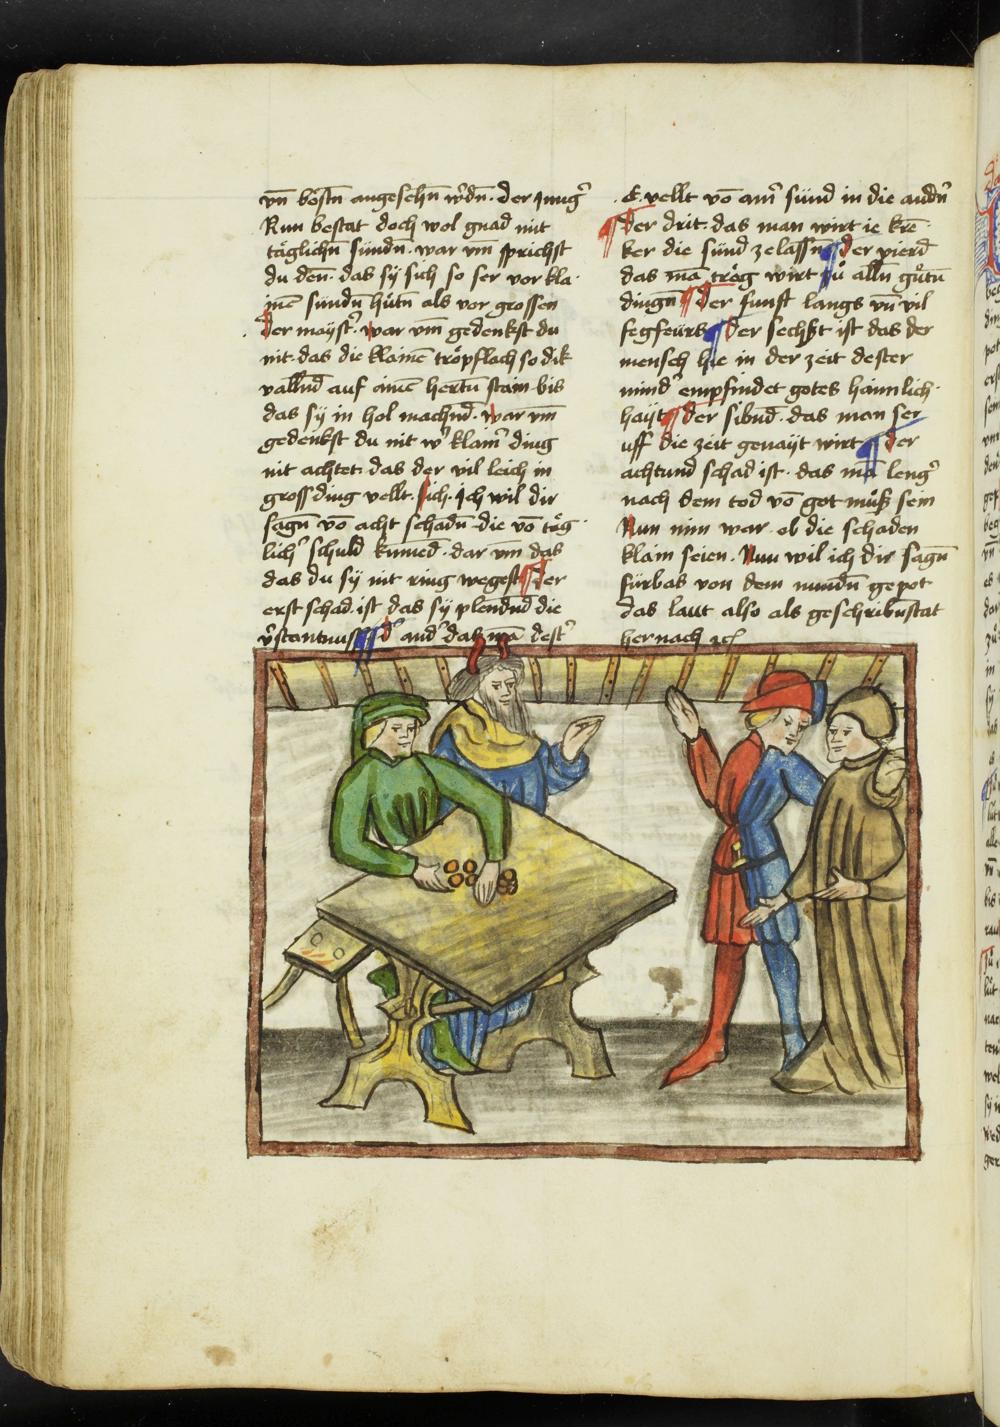 vn̄ bösn̄ angesehn̄ w̓dn̄. der Jung̓
Nun bestat doch wol gnad mit
täglichn̄ sündn̄. war vm̄ sprichst
du den̄. das sy sich so ser vor kla
inē sündn̄ hütn̄ als vor grossen
der mayst̓. war vm̄ gedenkst du
nit. das die klainē tröpflach so dik
vallnd̄ auf ainē hertn̄ stain. bis
das sy in hol machnd̄. war vm̄
gedenkst du nit w̓ klain̓ ding
nit achtet. das der vil leich in
gross ding vellt. sich. Jch wil dir
sagn̄ vō acht schadn̄. die vō täg
lich̓ schuld kumēd. dar vm̄ das
das du sy nit ring wegest. der
erst schad ist das sy plendnd̄ die
v̓stantnuss d̓ and̓ das mā dest̓
E. vellt vō ain̓ sünd in die andn̓
der drit. das man wirt ie krē
ker die sünd ze lassn̄. der vierd
das mā träg wirt zů alln̄ gůtn̄
dingn̄. der funft langs vn̄ vil
fegfeurs. der sechst ist das der
mensch hie in der zeit dester
mind̓ empfindet gotes haimlich
hayt. der sibnd̄. das man ser
uff die zeit genaÿt wirt. der
achtund schad ist. das mā leng̓
nach dem tod vō got můß sein
Nun nim war. ob die schaden
klain seien. Nun wil ich dir sagn̄
fürbas von dem nündn̄ gepot
das laut also als geschribn̄ stat
hernach ꝛc